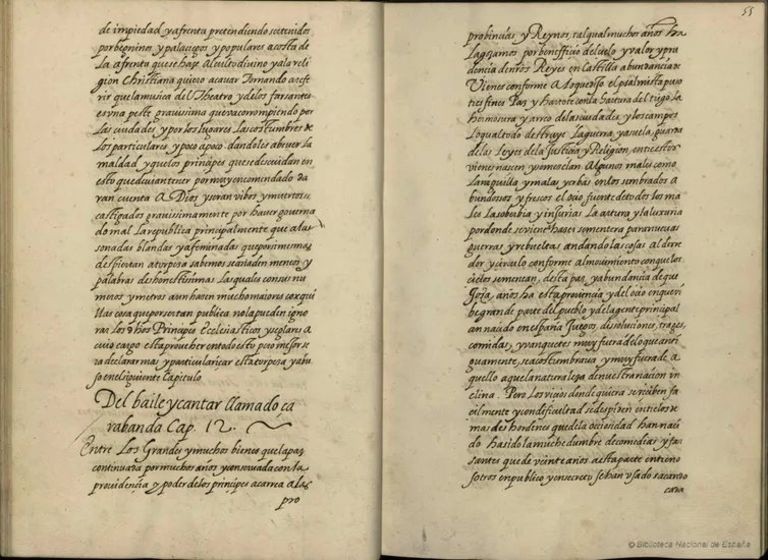 de impiedad y afrenta pretendiendo ser tenidos
por benignos y palacigos y populares acosta de
la afrenta que se haze Al culto divino y ala reli
gion Christiana quiero acavar Tornando arefe
rir que la musica del Theatro y de los farsantes
es una peste gravissima que va corrompiendo por
las ciudades y por los lugares las costumbres de
los particulares y poco apoco dandoles abever la
maldad y que los principes que se descuidan en
esto que devian tener por muy encomendado da
ran cuenta A Dios y seran vibos y muertos
castigados gravissimamente por haver governa
do mal la republica principalmente que a las
sonadas blandas y afeminadas que por si mismas
despiertan a torpeza sabemos se añaden meneos y
palabras deshonestissimas las quales con sus nu
meros y metros aun hazen mucho maiores
las cosa que por ser tan publica no la pueden igno
rar los dhos Principes Ecclesiasticos y seglares a
cuio cargo esta proveher en todo esto pero mejor se
ra declarar mas y particulariçar esta torpeza y abu
so en el siguiente Capitulo
Del baile y cantar llamado ca
rabanda Cap. 12.
Entre Los Grandes y muchos bienes que la paz
continuada por muchos años y conservada con la
providencia y poder de los principes acarrea a las
pro
55
probincias y Reynos, tal qual muchos años ha
la gozamos por benefficio del cielo y valor y pru
dencia de nros Reyes en Castilla abundancia de
Vienes conforme A lo que dijo el psalmista puso
tus fines Paz y harto te con la hartura del trigo la
hermosura y arreo de las ciudades y los campos
lo qual todo destruye la guerra y asuela, guarda
de las leyes de la Justicia y Religion, entre estos
vienes nascen y se mezclan Algunos males como
la neguilla y malas yerbas en los sembrados a
bundosos y frescos el ocio fuente de todos los ma
les la soberbia y injurias la artura y la luxuria
por donde se viene hazer sementera para nuevas
guerras y rebueltas andando las cosas al derre
dor y circulo conforme al movimiento con que los
cielos se menean, desta paz y abundancia de que
Goza años ha esta provincia y del ocio en que vi
be grande parte del pueblo y de la gente principal
an nacido en españa Juegos, dissoluciones, trages,
comidas, y vanquetes muy fuera de lo que anti
guamente se acostumbrava y muy fuera de a
quello a que la naturaleza de nuestra nacion in
clina. Pero los vicios donde quiera se resciben fa
cilmente y con dificultad se despiden entre los de
mas desordenes que de la ociosidad han naci
do ha sido la muchedumbre de comedias y far
santes que de veinte años a esta parte entre no
sotros en publico y en secreto se han usado sacando
cada
© Biblioteca Nacional de España